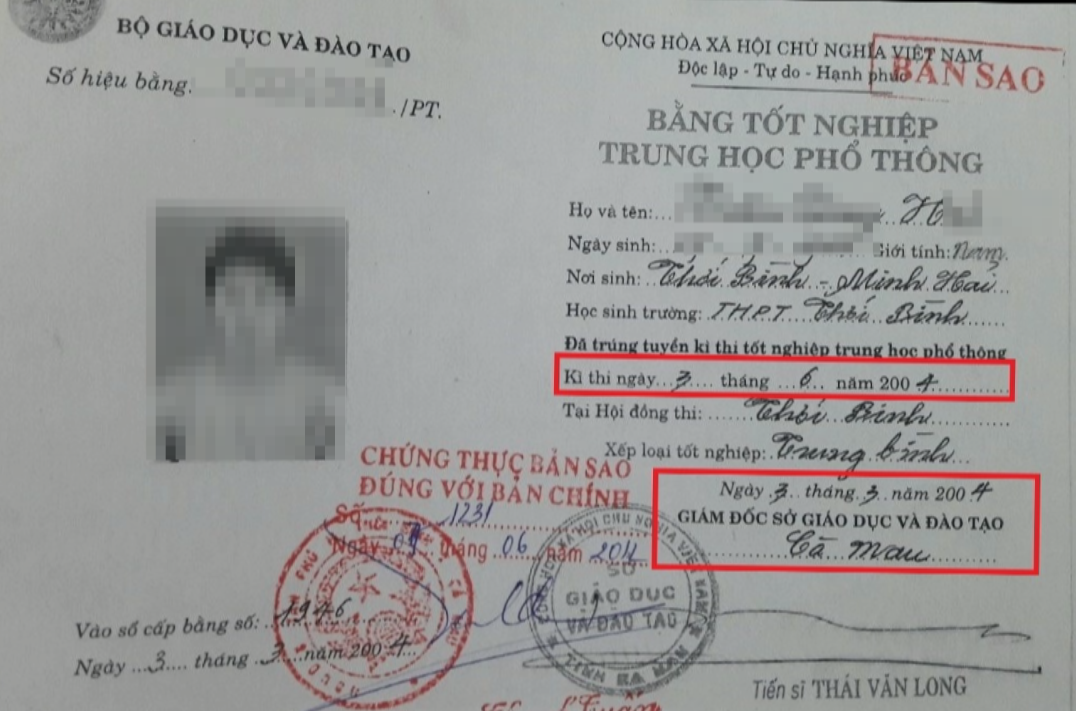 BỘ GIÁO DỤC VÀ ĐÀO TẠO
Số hiệu bằng. /PT.
CỘNG HÒA XÃ HỘI CHỦ NGHĨA VIỆT NAM
Độc lập - Tự do - Hạnh phúc
BẢN SAO
BẰNG TỐT NGHIỆP
TRUNG HỌC PHỔ THÔNG
Họ và tên:...
Ngày sinh: Giới tính: Nam.
Nơi sinh: Thới Bình - Minh Hải...
Học sinh trường: THPT Thới Bình
Đã trúng tuyển kì thi tốt nghiệp trung học phổ thông
Kì thi ngày...3.... tháng ...6... năm 2004
Tại Hội đồng thi: Thới Bình
Xếp loại tốt nghiệp: Trung bình...
Ngày 3 tháng 3 năm 2004
GIÁM ĐỐC SỞ GIÁO DỤC VÀ ĐÀO TẠO
Cà Mau
CHỨNG THỰC BẢN SAO
ĐÚNG VỚI BẢN CHÍNH
Số 1231
Ngày 09 tháng 06 năm 2011
SỞ
GIÁO DỤC
VÀ ĐÀO TẠO
Vào sổ cấp bằng số: 1946
Ngày ...3.... tháng ..3.. năm 2004
Tiến sĩ THÁI VĂN LONG